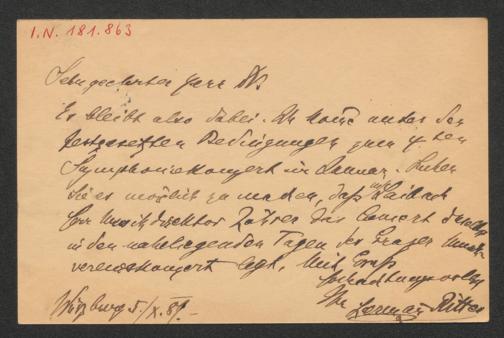 I.N. 181.863
Sehr geehrter Herr Dr.
Es bleibt also dabei. Ich komme unter den
festgesetzten Bedingungen zum 4ten
Symphoniekonzert im Januar.
Sie es möglich zu machen, daß mir Laibach
Herr Musikdirektor Zöhrer das Concert
in den naheliegenden Tagen des Grazer Musik-
vereinskonzert legt. Mit Gruß
hochachtungsvollst
Ihr Hermann Ritter
Würzburg 5/X. 89.